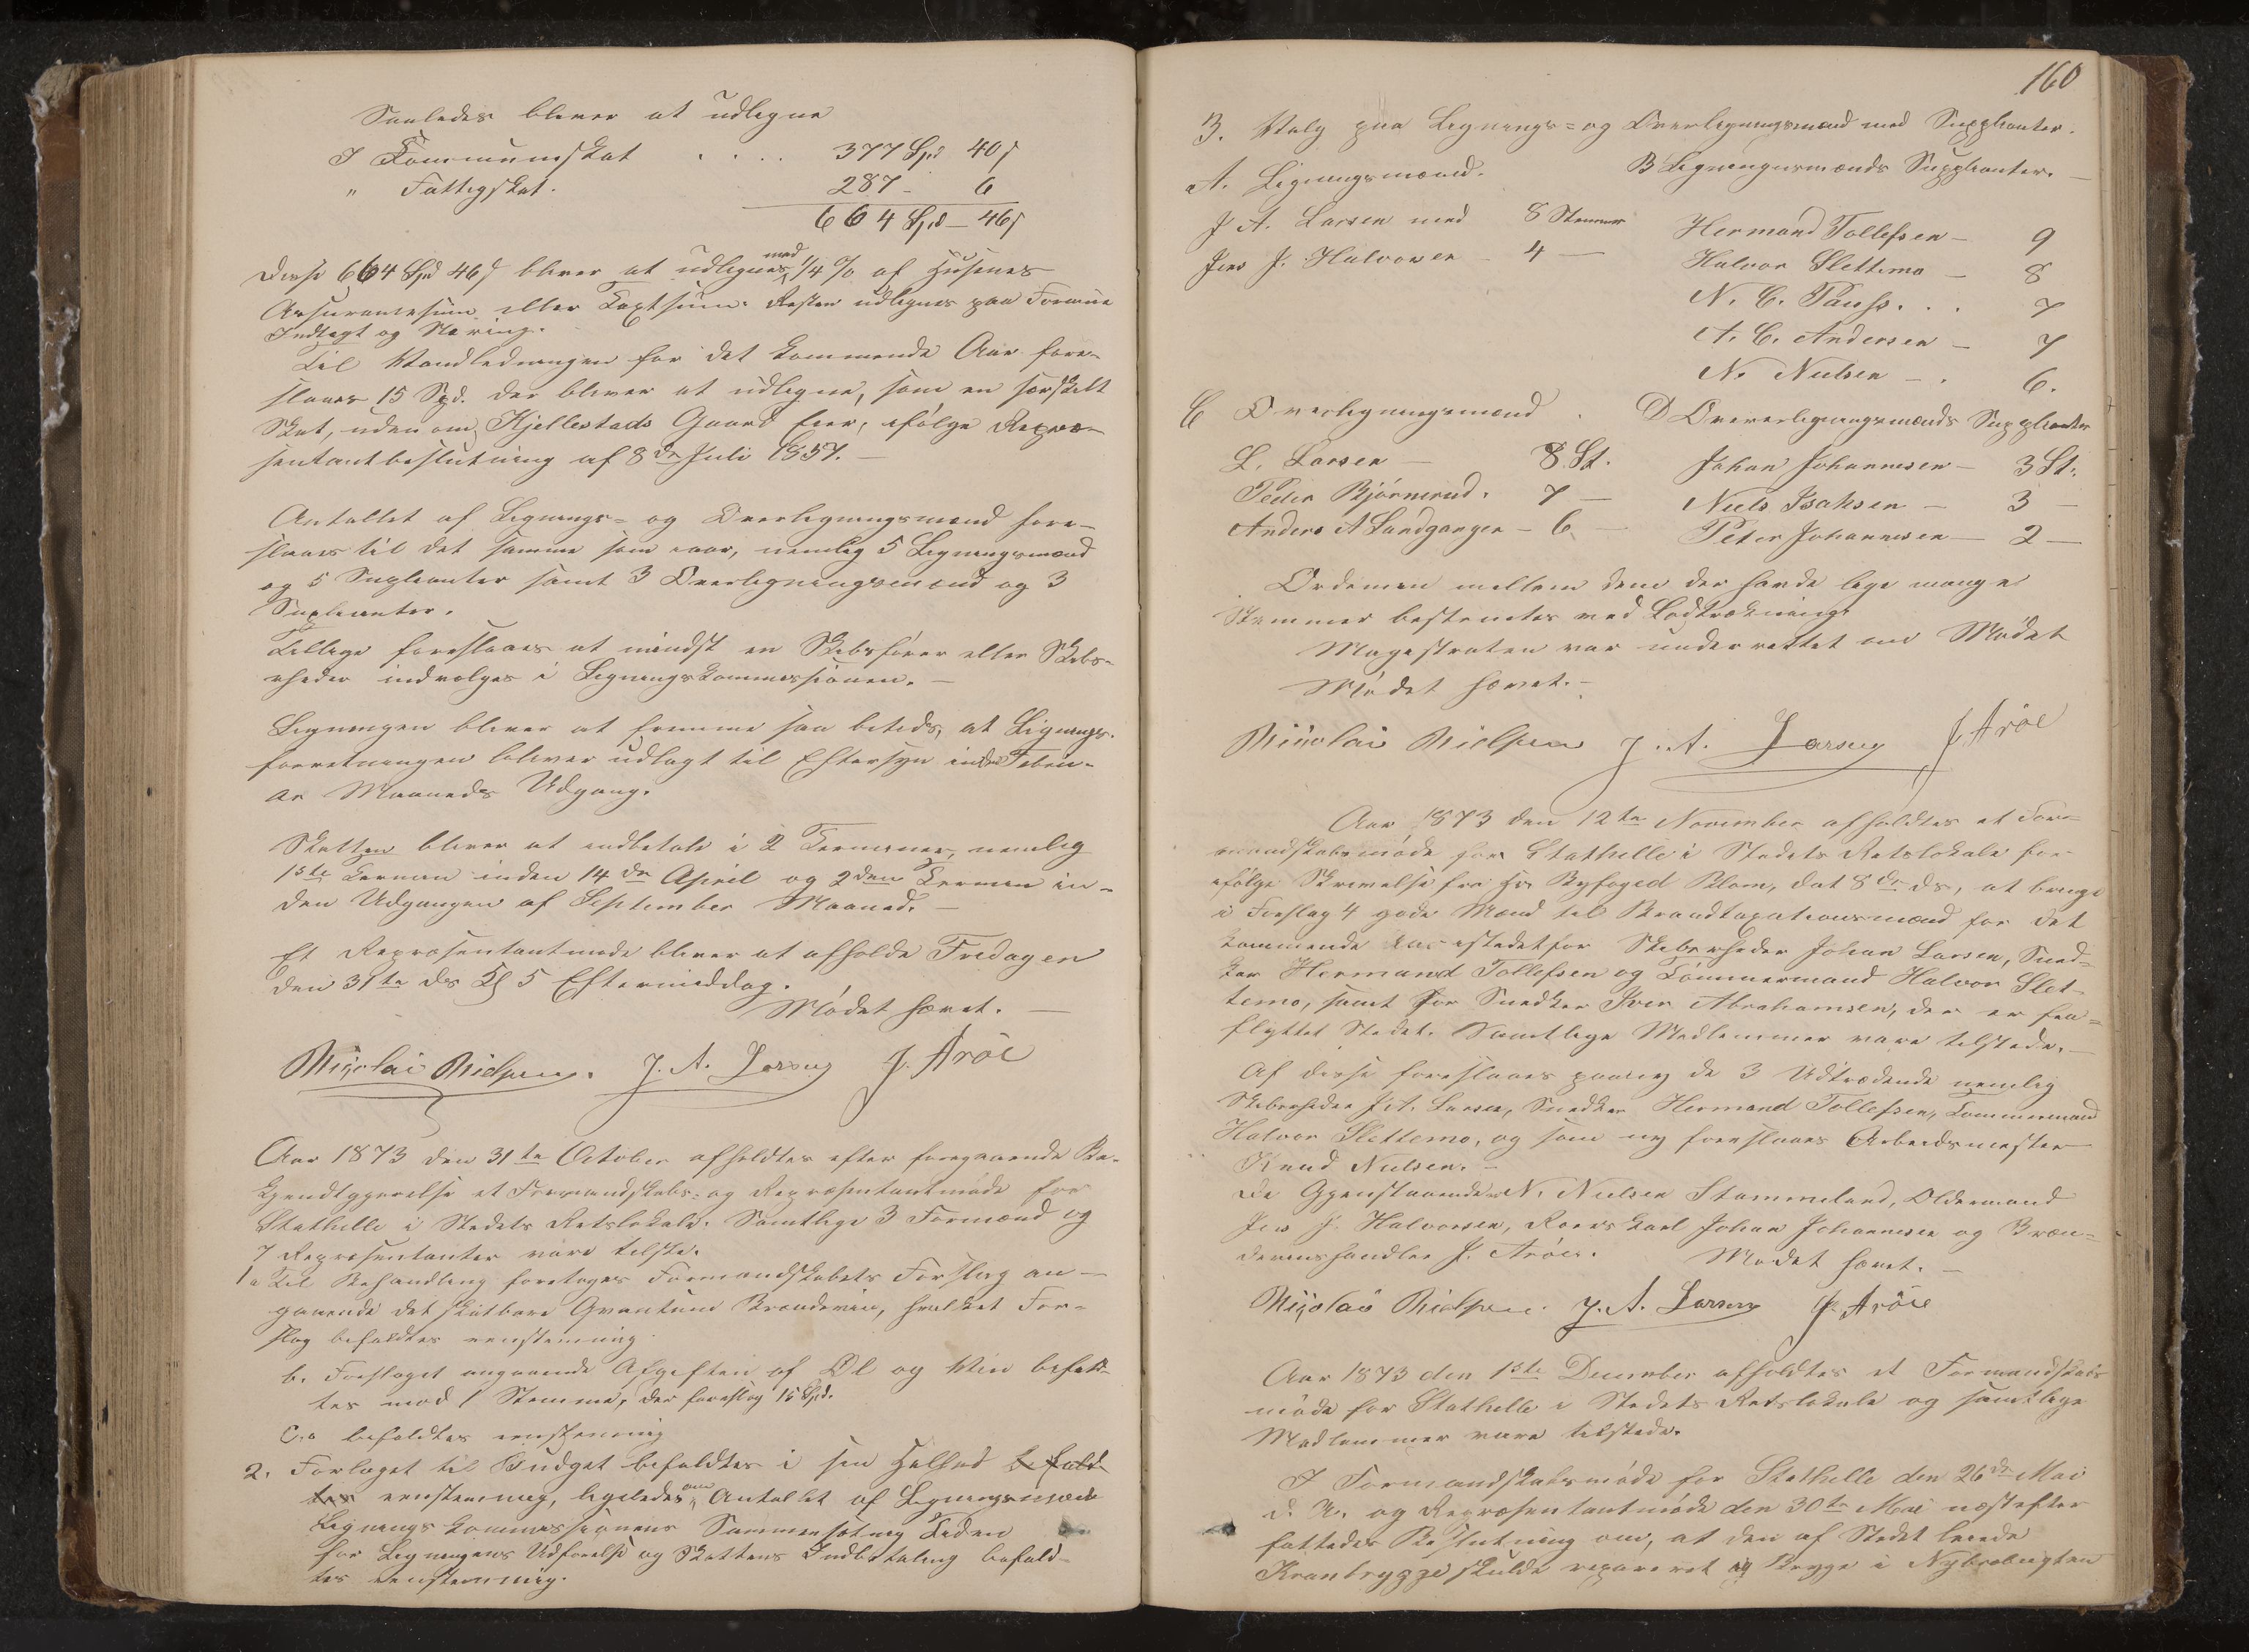 Saaledes bliver at udligne
I Kommuneskat . . . . 377 Spd 40 s
" Fattigskat. 287 - 6
664 Spd - 46 s
Disse 664 Spd 46 s bliver at udlignes med 1/4 % af Husenes
Assurancesum eller Taxtsum. Resten udlignes paa Formue
Indtægt og Næring.
Til Vandledningen for det kommende Aar fore-
slaaes 15 Spd. der bliver at udligne, som en særskilt
Skat, uden om Kjellestads Gaard feir, ifølge Repræ-
sentantbeslutning af 8de Juli 1857. -
Antallet af Lignings- og Overligningsmænd fore-
slaaes til det samme som iaar, nemlig 5 Ligningsmænd
og 5 Suplianter samt 3 Overligningsmænd og 3
Suplianter.
Tillige foreslaaes at mindst en Skibsfører eller Skibs-
rheder indvælges i Ligningskommissionen. -
Ligningen bliver at fremme saa betids, at Lignings-
forretningen bliver udlagt til Eftersyn inden Febru-
ar Maaneds Udgang.
Skatten bliver at indbetale i 2 Terminer, nemlig
1ste Termin inden 14de April og 2den Termin in-
den Udgangen af September Maaned. -
Et Repræsentantmøde bliver at afholde Fredagen
den 31te ds Kl 5 Eftermiddag.
Mødet hævet. -
Nicolai Nielsen. J. A. Larsen J. Arøe
Aar 1873 den 31te October afholdtes efter foregaaende Be-
kjendtgjørelse et Formandskabs- og Repræsentantmøde for
Stathelle i Stedets Retslokale. Samtlige 3 Formænd og
7 Repræsentanter vare tilstede.
1 a Til Behandling foretoges Formandskabets Forslag an-
gaaende det skatbare Qvantum Brændeviin, hvilket For-
slag befoldtes eenstemmig.
b. Forslaget angaaende Afgiften af Øl og Vin befuldt-
tes mod 1 Stemme, der foreslog 15 Spd.
C. befoldtes eenstemmig
2. Forlaget til Budget befoldtes i sin Helhed befold-
tes eenstemmig, ligeledes om Antallet af Ligningsmænd
Ligningskommissionens Sammensætning Tiden
for Ligningens Udførelse og Skattens Indbetaling befold-
tes eenstemmig.
160
3. Valg paa Lignings- og Overligningsmænd med Supplianter.
A. Ligningsmænd. B Ligningsmænds Supplianter. -
J A. Larsen med 8 Stemmer Hermand Tollefsen - 9
Jens J. Halvorsen - 4 - Halvor Slettemo - 8
N. C. Paus . . . 7
A. C. Andersen - 7
N. Nielsen - . 6.
C Overligningsmænd . D Overligningsmænds Supplianter
L. Larsen - 8 St. Johan Johannesen - 3 St.
Peder Bjørnerud. 7 - Niels Isaksen - 3 -
Anders A Landganger - 6 - Peter Johannesen - 2 -
Ordenen mellem dem der havde lige mange
Stemmer bestemtes ved Lodtrækning.
Magistraten var underrettet om Mødet
Mødet hævet. -
Nicolai Nielsen J. A. Larsen J. Arøe
Aar 1873 den 12te November afholdtes et For-
mandskabsmøde for Stathelle i Stedets Retslokale for
ifølge Skrivelse fra Hr Byfoged Blom, dat 8de ds, at bringe
i Forslag 4 gode Mænd til Brandtaxationsmænd for det
kommende Aar istedetfor Skibsrheder Johan Larsen, Sned-
ker Hermand Tollefsen og Tømmermand Halvor Slet-
temo, samt for Snedker Iver Abrahamsen, der er fra-
flyttet Stedet. Samtlige Medlemmer vare tilstede. -
Af disse foreslaaes paany de 3 Udtrædende nemlig
Skibsrheder J. A. Larsen, Snedker Hermand Tollefsen, Tømmermand
Halvor Slettemo, og som ny foreslaaes Arbeidsmester
Knud Nielsen. -
De Gjenstaaende N. Nielsen Stammeland, Oldermand
Jens J. Halvorsen, Roerskarl Johan Johannesen og Bræn-
deviinshandler J. Arøe. Mødet hævet. -
Nicolai Nielsen. J. A. Larsen J. Arøe
Aar 1873 den 1ste December afholdtes et Formandskabs
møde for Stathelle i Stedets Retslokale og samtlige
Medlemmer vare tilstede.
I Formandskabsmøde for Stathelle den 26de Mai
d. A. og Repræsentantmøde den 30te Mai næstefter
fattedes Beslutning om, at den af Stedet leiede
Kranbrygge skulde repareret og Brygge i Nybrobugten